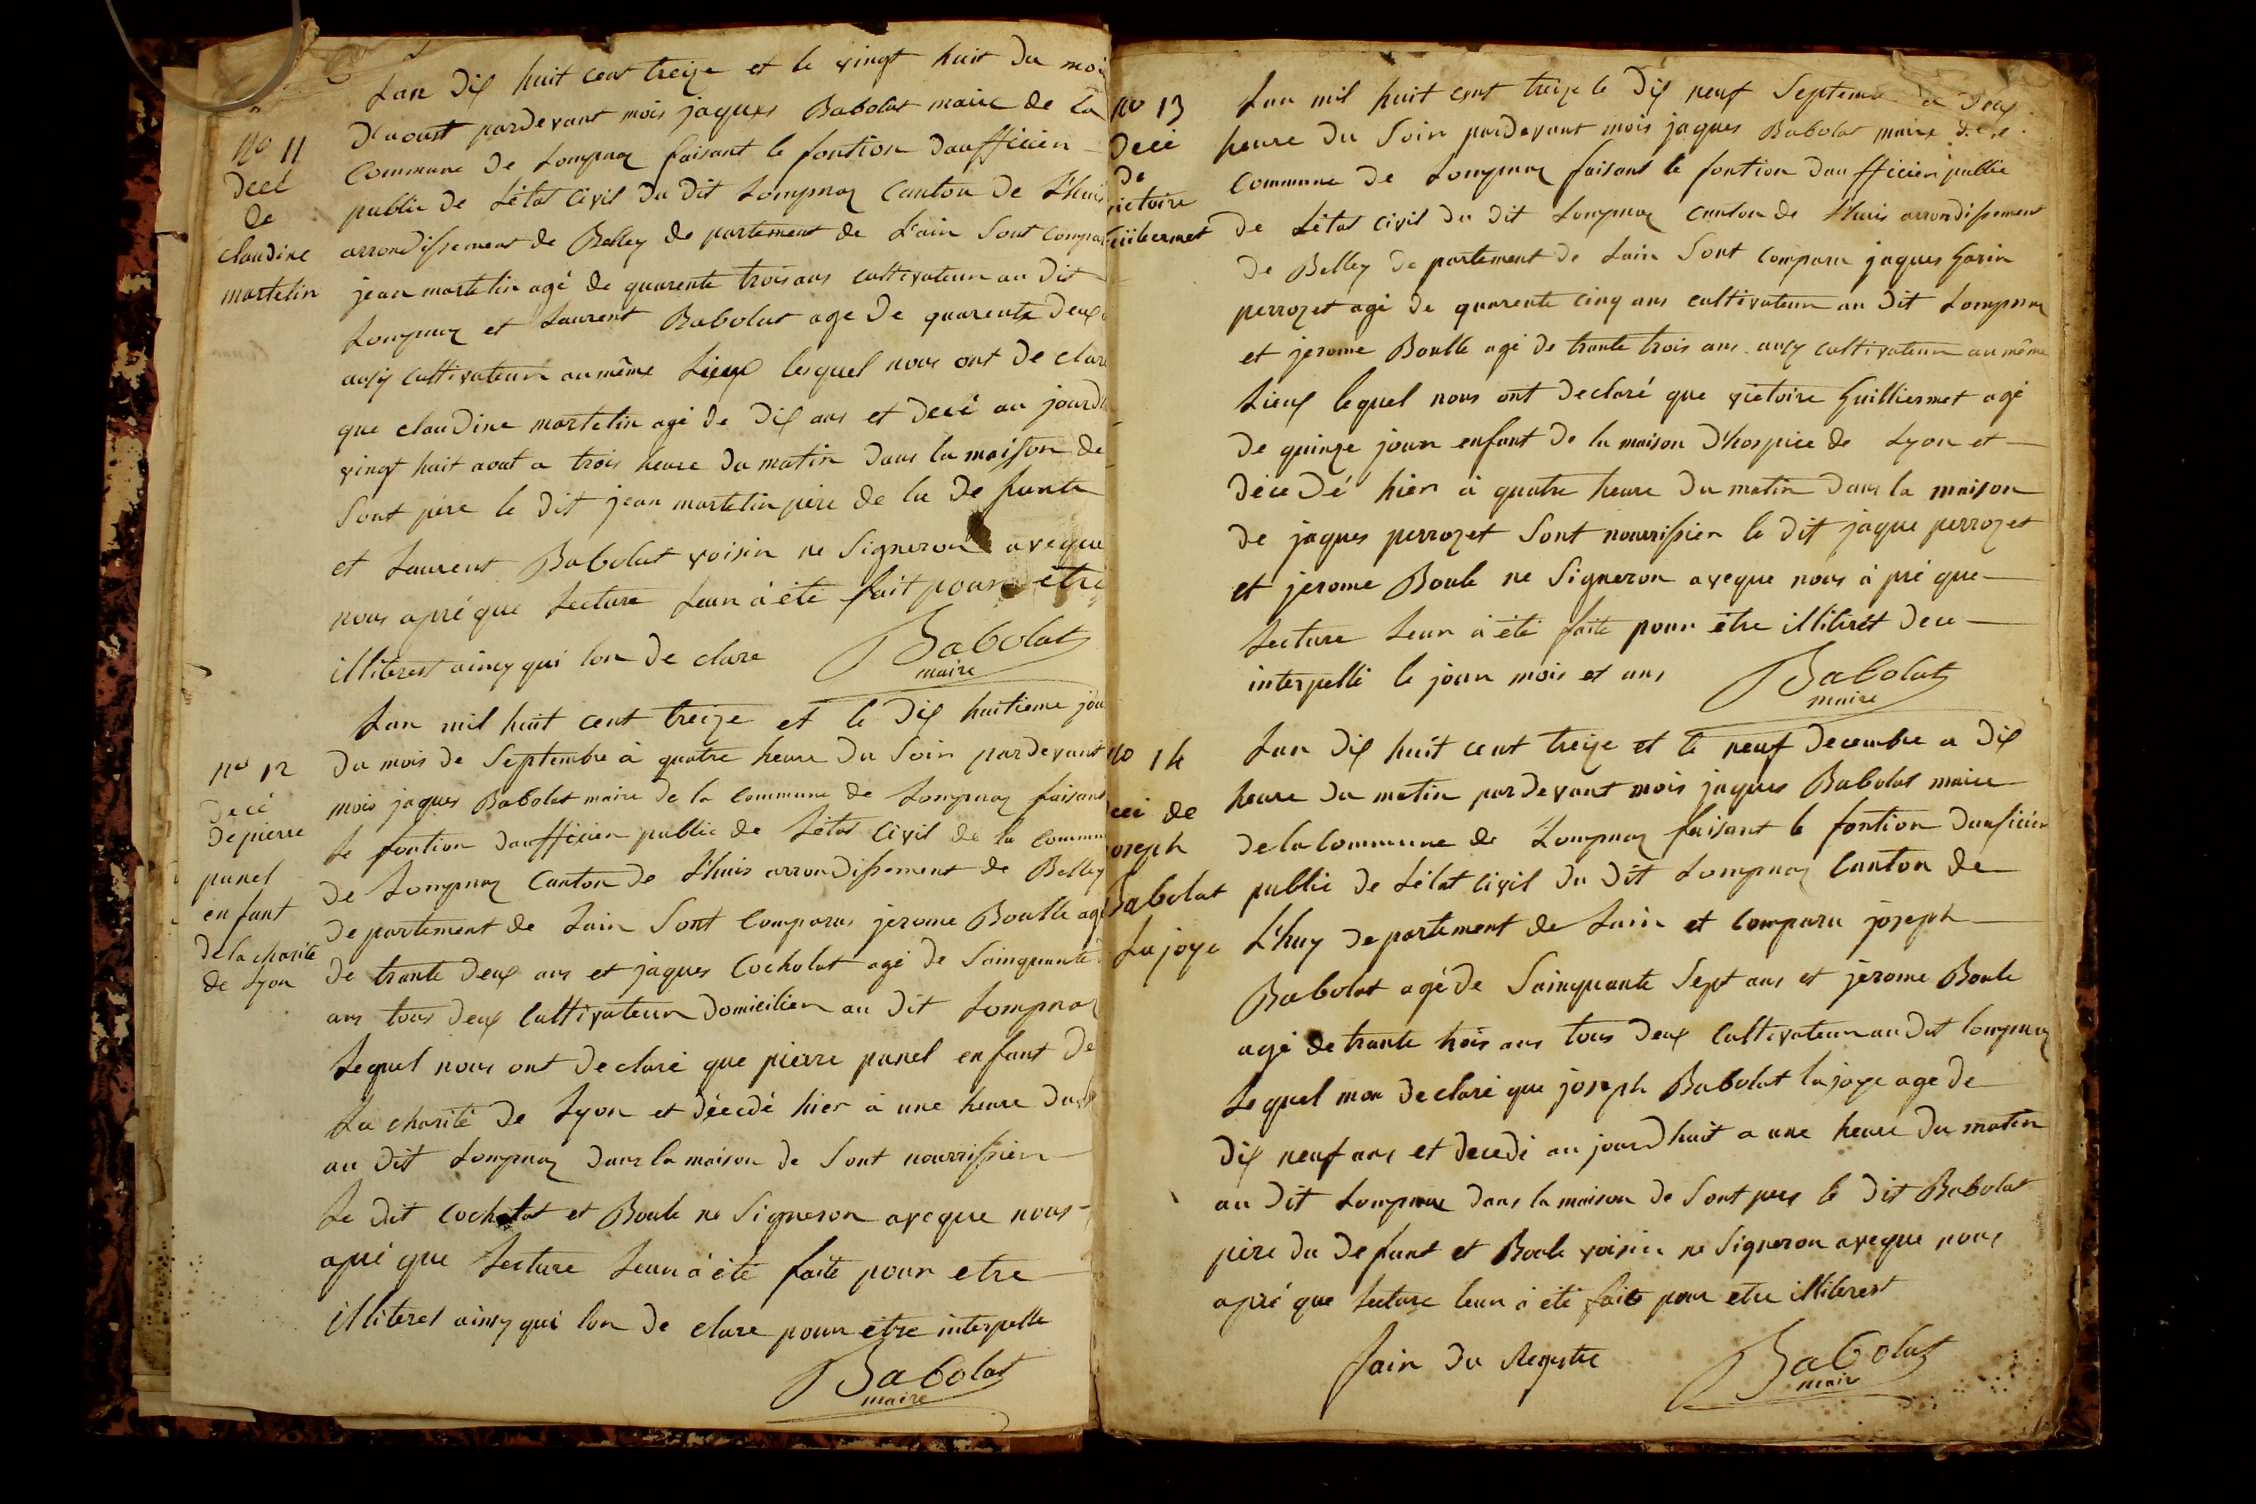 Lan dix huit cent treize et le vingt huit du moi
No 11
decé
de
claudine
martelin
d'aoust pardevant mois jaques Babolat maire de la
commune de Lompnaz faisant le fontion daufficien
public de Létat civil du dit Lompnaz canton de Lhuis
arrondissement de Belley de partement de L'ain Sont compar
jean martelin agé de quarente trois ans cultivateur au dit
Lompnaz et Laurent Babolat age de quarente deux
ausy cultivateur au même Lieux lesquel nous ont de claré
que claudine martelin agé de dix ans et decé au jourd
vingt huit aout a trois heure du matin dans la maison de
Sont père le dit jean martelin père de la de funte
et Laurent Babolat voisin ne Signeron aveque
nous apré que Lecture Leur à été fait pour être
illiterest ainsy qui lon de clare
Babolat
maire
Lan mil huit cent treize et le dix huitieme jou
No 12
decé
de pierre
panel
enfant
de la charite
de Lyon
du mois de Septembre à quatre heure du Soir pardevant
mois jaques Babolat maire de la commune de Lompnaz faisant
Le fontion daufficien public de Létat civil de la commun
de Lompnaz canton de Lhuis arrondissement de Belley
departement de Lain Sont comparus jerome Boulle agé
de trante deux ans et jaques Cocholat agé de Sainquante
ans tous deux Cultivateur domicilien au dit Lompnaz
Lequel nous ont declaré que pierre panel enfant de
La charité de Lyon et décedé hier à une heure du
au dit Lompnaz dans la maison de Sont nourrissien
Le dit cocholat et Boule ne Signeron aveque nous
apré que Lecture Leur à été faite pour etre
illiterest ainsy qui lon de clare pour etre interpelle
Babolat
maire
No 13
decé
de
victoire
Guilliermet
Lan mil huit cent treize le dix neuf Septembre à deux
heure du Soir pardevant mois jaques Babolat maire de
commune de Lompnaz faisant le fontion daufficien public
de Létat civil du dit Lompnaz canton de Lhuis arrondissement
de Belley de partement de Lain Sont comparu jaques Garin
perrozet agé de quarente cinq ans cultivateur au dit Lompnaz
et jerome Boulle agé de trante trois ans ausy cultivateur au même
Lieux lequel nous ont declaré que victoire Guilliermet agé
de quinze jour enfant de la maison d'hospice de Lyon et
décedé hier à quatre heure du matin dans la maison
de jaques perrozet Sont nourrissien le dit jaque perrozet
et jerome Boule ne Signeron aveque nous à pré que
Lecture Leur à été faite pour être illiterest dece
interpellé le jour mois et ans
Babolat
maire
No 14
deci de
joseph
Babolat
Lajoye
Lan dix huit cent treize et le neuf decembre a dix
heure du matin pardevant mois jaques Babolat maire
de la commune de Lompnaz faisant le fontion daufisien
public de Létat civil du dit Lompnaz Canton de
L'huy departement de Lain et comparu joseph
Babolat agé de Sainquante Sept ans et jerome Boule
agé de trante trois ans tous deux cultivateur au dit lompnaz
Lequel mon declaré que joseph Babolat lajoye age de
dix neuf ans et decedé au jourdhuit a une heure du matin
au dit Lompnaz dans la maison de Sont père le dit Babolat
père du defunt et Boule voisin ne Signeron aveque nous
apré que Lecture leur à été faite pour etre illiterest
fain du Registre
Babolat
mair